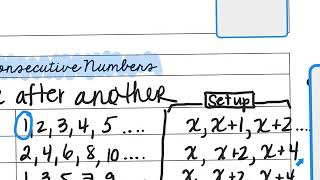 onsecutive Numbers
after another
Setup
1, 2, 3, 4, 5 ....
x, x+1, x+2 ....
2, 4, 6, 8, 10 ....
x, x+2, x+4